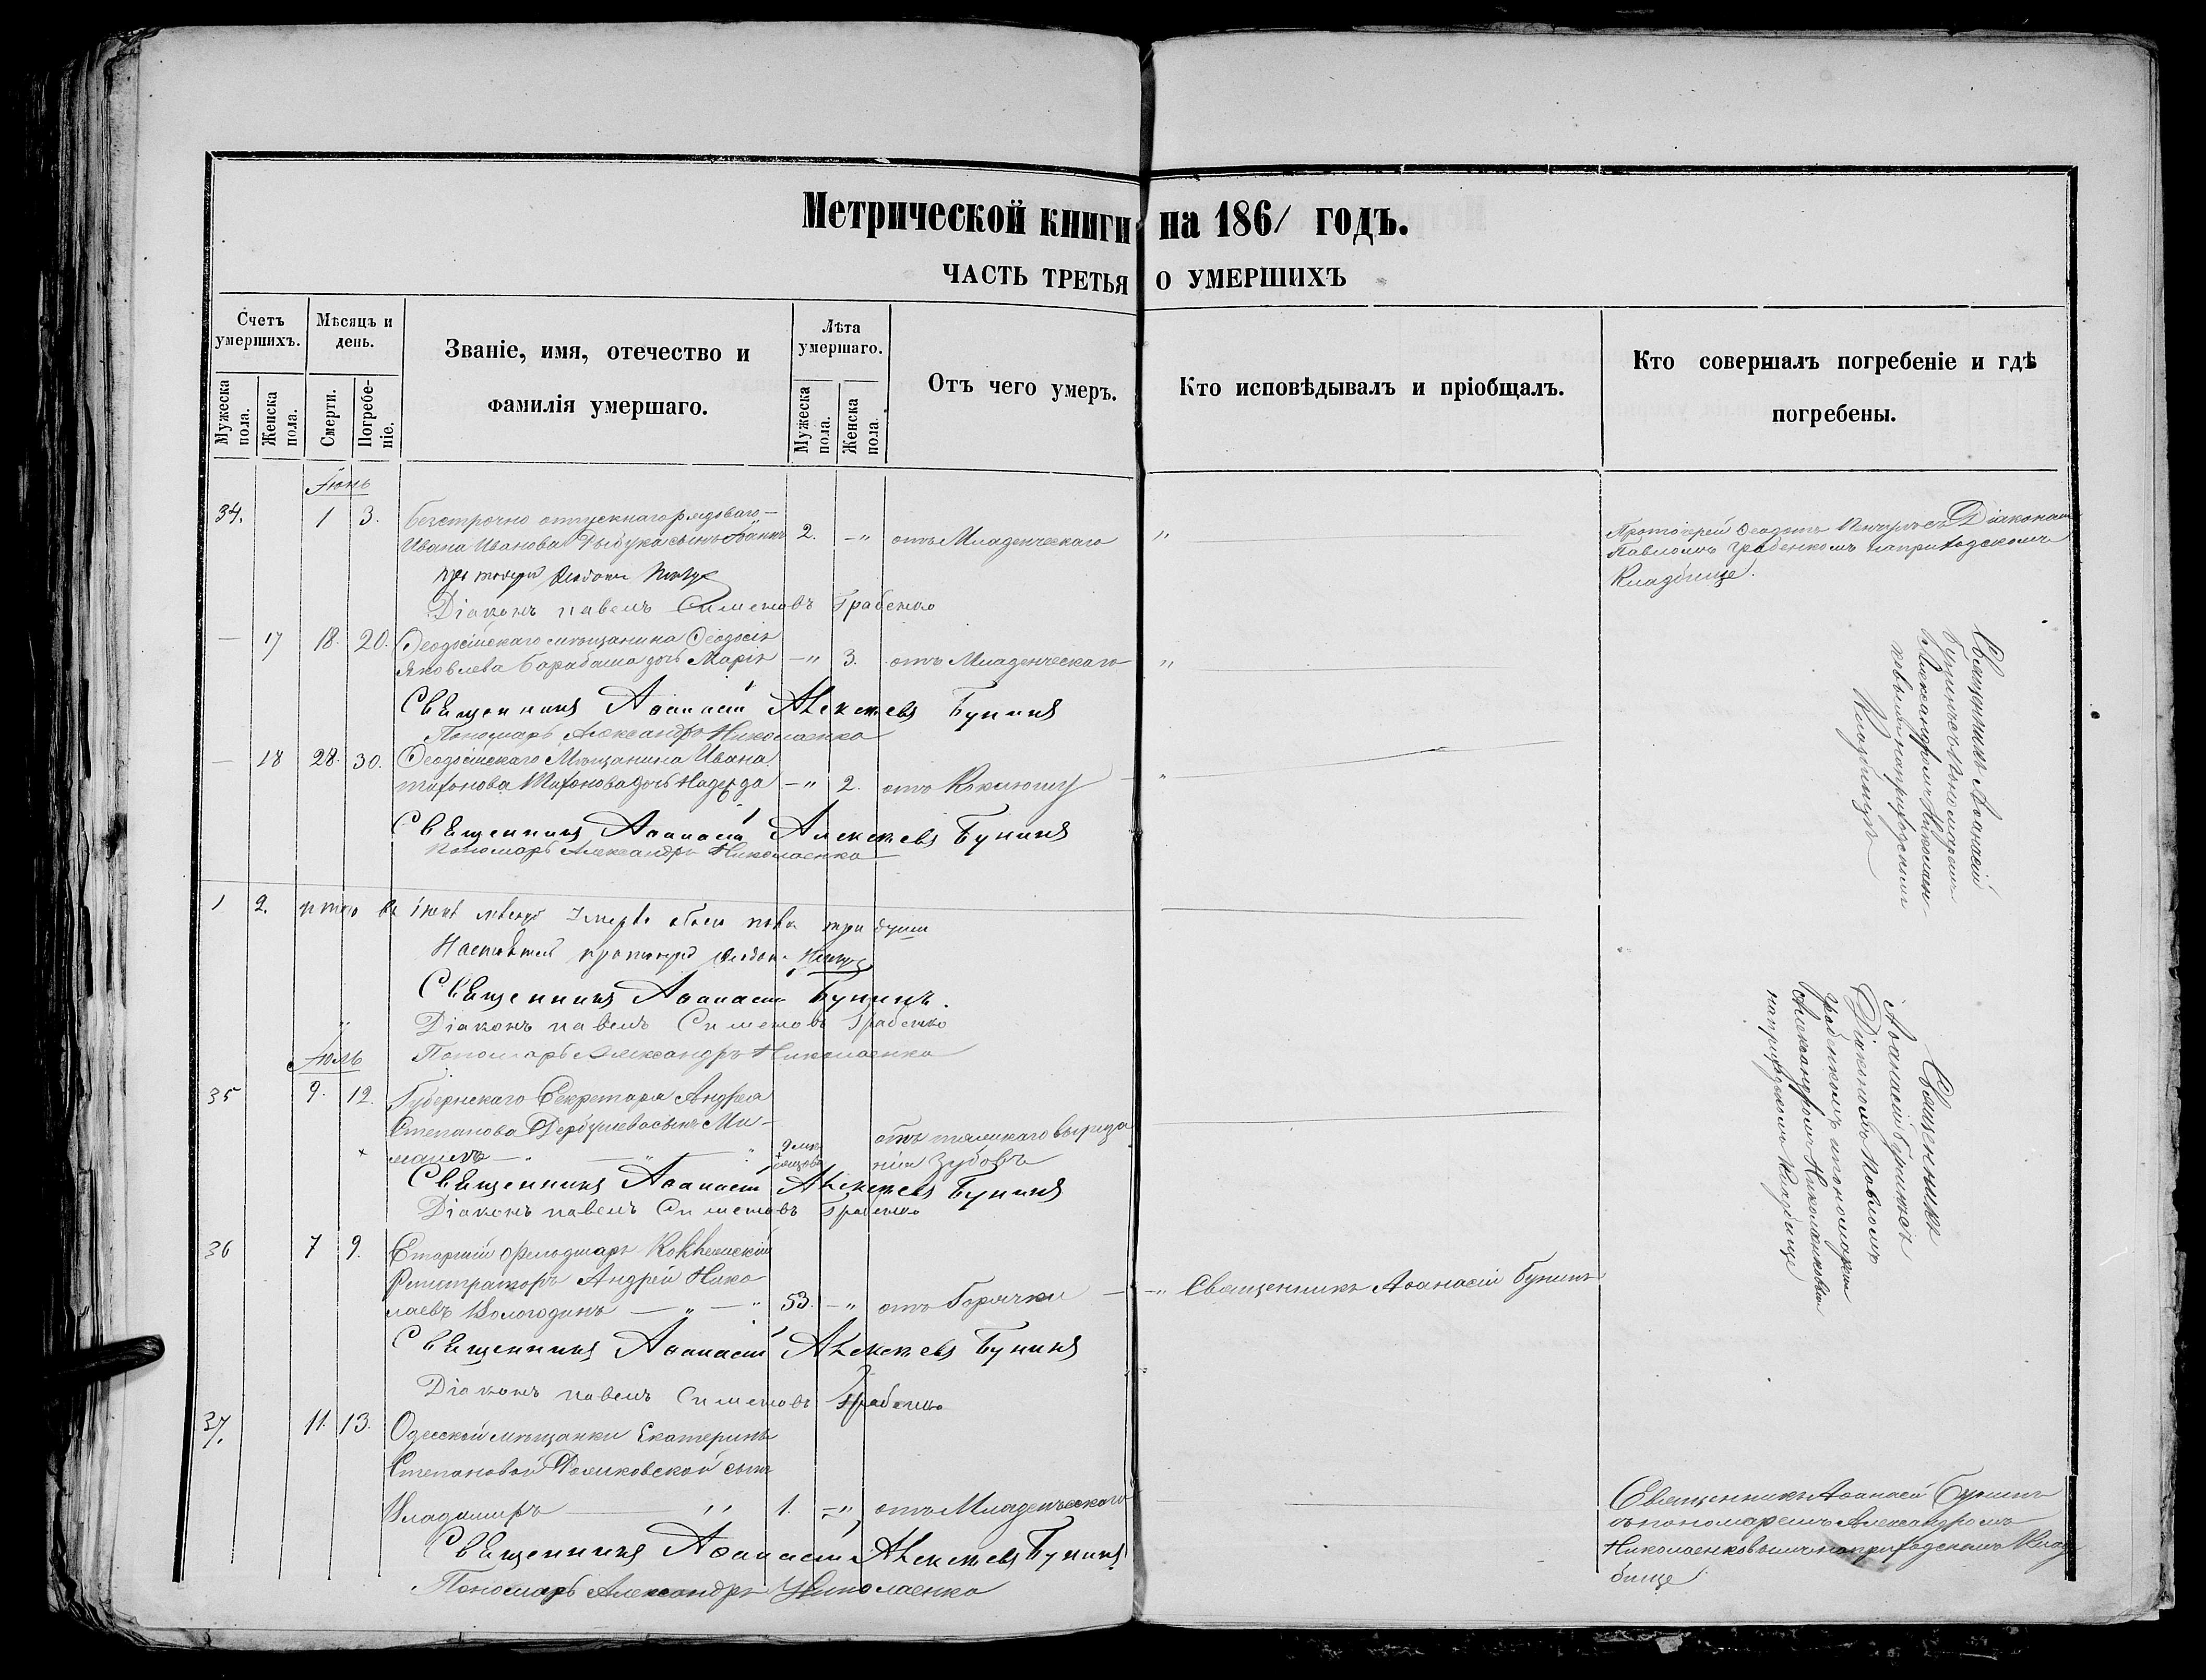 Метрической книги на 186/ годъ.
ЧАСТЬ ТРЕТЬЯ О УМЕРШИХЪ
Счетъ умершихъ.
Мужеска пола.
Женска пола.
Мѣсяцъ и день.
Смерти.
Погребеніе.
Званіе, имя, отечество и
фамилія умершаго.
Лѣта умершаго.
Мужеска пола.
Женска пола.
Отъ чего умеръ.
Кто исповѣдывалъ и пріобщалъ.
Кто совершалъ погребеніе и гдѣ
погребены.
Іюнь
34. 1 3. Безсрочно отпускнаго рядоваго
Ивана Иванова сынъ 2. —" отъ Младенческаго "
Протоіерей Діакономъ
Павломъ Грабенкомъ наприходскомъ
Кладбище.
Діаконъ павелъ Симеоновъ Грабенко
— 17 18. 20. Ѳеодосійскаго мѣщанина Ѳеодосія
Яковлева Барабаша дочь Марія —" 3. отъ Младенческаго "
Священникъ Аѳанасій Алексѣевъ Бунинъ
Пономарь Александръ Николаенко
Священникъ Аѳанасій
Бунинъ съ Пономаремъ
Александромъ Николаен-
ковымъ наприходскомъ
Кладбищѣ
— 18 28. 30. Ѳеодосійскаго Мѣщанина Ивана
Тифонова дочь Надежда —" 2. отъ Коклюшу
Священникъ Аѳанасій Алексѣевъ Бунинъ
Пономарь Александръ Николаенко
1 2. итого въ іюнѣ мѣсяцѣ обоего пола три души
Священникъ Аѳанасій Бунинъ.
Діаконъ павелъ Симеоновъ Грабенко
Пономарь Александръ Николаенко
Іюль
35 9. 12. Губернскаго Секретаря Андрея
Степанова сынъ Ми-
хаилъ — " — " — " 9 мѣсяцовъ отъ тяжелаго выреза
нія Зубовъ
Священникъ Аѳанасій Алексѣевъ Бунинъ
Діаконъ павелъ Симеоновъ Грабенко
Священникъ
Аѳанасій Бунинъ съ
Діакономъ Павломъ
Грабенкомъ ипономаремъ
Александромъ Николаенковымъ
наприходскомъ Кладбище
36 7 9. Старшій Фельдшаръ
Регистраторъ Андрей Нико
лаевъ Вологодинъ — " — " 53. —" отъ Горячки — " Священникъ Аѳанасій Бунинъ
Священникъ Аѳанасій Алексѣевъ Бунинъ
Діаконъ павелъ Симеоновъ Грабенко
37. 11. 13. Одесской мѣщанки Екатерины
Степановой сынъ
Владимиръ — " 1. —" отъ Младенческаго
Священникъ Аѳанасій Алексѣевъ Бунинъ
Пономарь Александръ Николаенко
Священникъ Аѳанасій Бунинъ
съ пономаремъ Александромъ
Николаенковымъ наприходскомъ Клад
бище